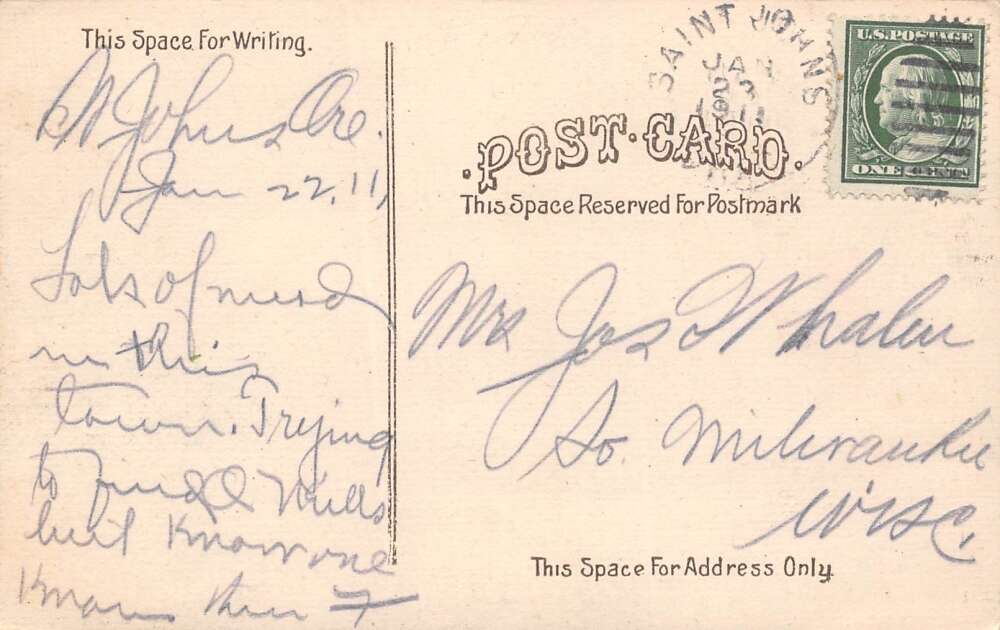 This Space For Writing.
St Johns Ore.
Jan 22, 11,
Lots of mud
in this
town. Trying
to find Mills
but Know one
Knows them F
SAINT JOHNS
JAN
23
1911
U.S. POSTAGE
ONE CENT
POST·CARD.
This Space Reserved For Postmark
Mrs Jas Whalen
So. Milwaukee
Wisc.
This Space For Address Only